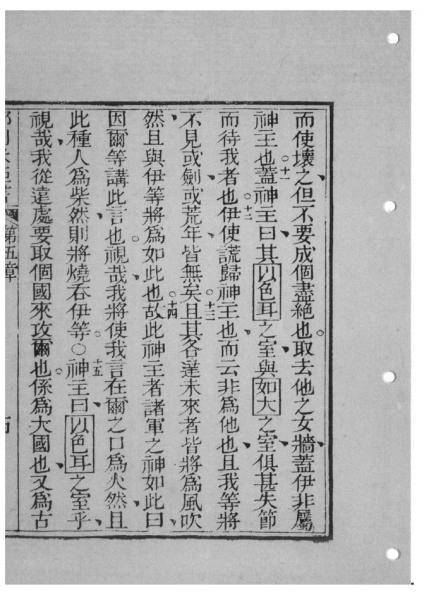 而使壞之但不要成個盡絕也取去他之女牆蓋伊非屬
神王也十一蓋神王曰其以色耳之室與如大之室俱甚失節
而待我者也十二伊使謊歸神王也而云非為他也且我等將
不見或劍或荒年皆無矣十三且其各達未來者皆將為風吹
然且與伊等將為如此也十四故此神王者諸軍之神如此曰
因爾等講此言也視哉我將使我言在爾之口為火然且
此種人為柴然則將燒吞伊等〇十五神王曰以色耳之室乎
視哉我從遠處要取個國來攻爾也係為大國也又為古
第五章